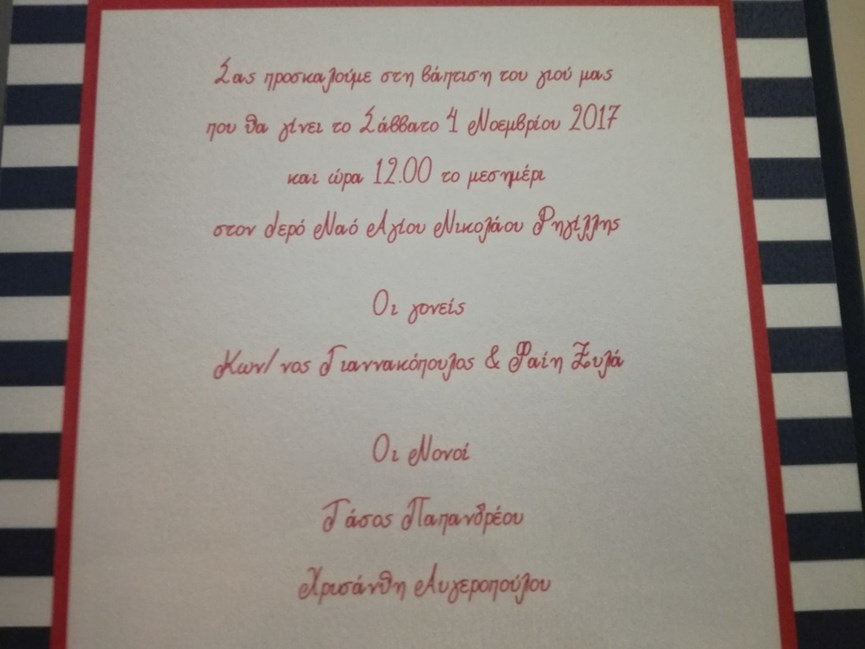 Σας προσκαλούμε στη βάπτιση του γιού μας
που θα γίνει το Σάββατο 4 Νοεμβρίου 2017
και ώρα 12.00 το μεσημέρι
στον Ιερό Ναό Αγίου Νικολάου Ρηγίλλης
Οι γονείς
Κων/νος Γιαννακόπουλος & Φαίη Ξυλά
Οι Νονοί
Τάσος Παπανδρέου
Χρυσάνθη Αυγεροπούλου